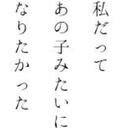 私だって
あの子みたいに
なりたかった